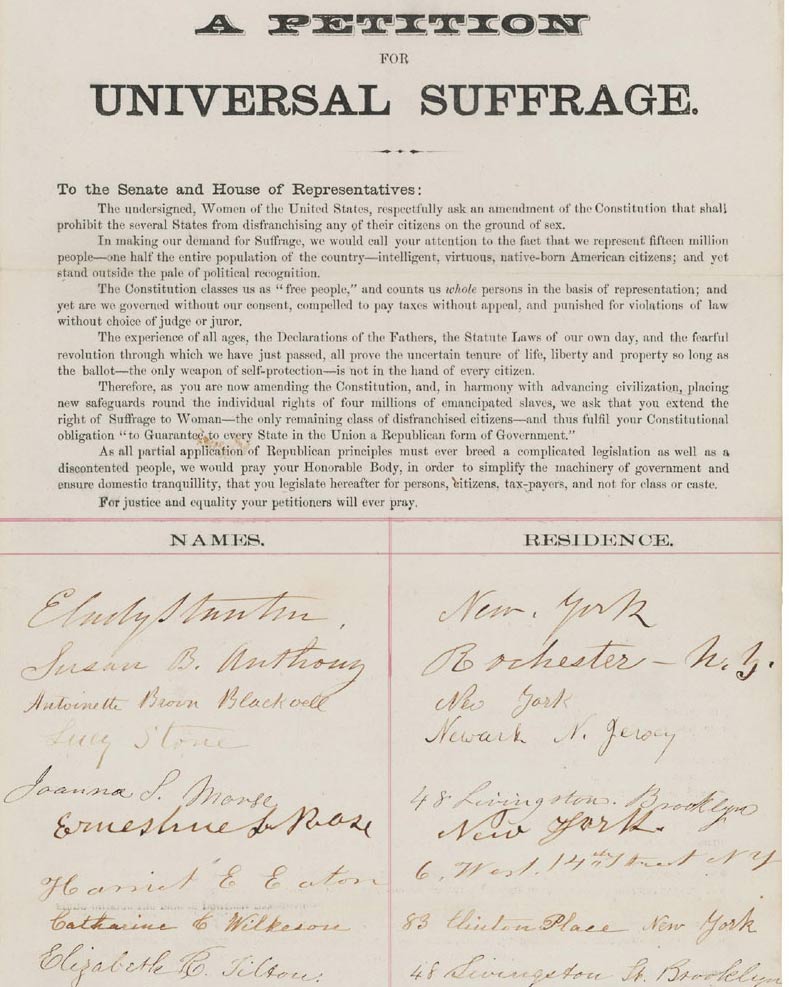 A PETITION
FOR
UNIVERSAL SUFFRAGE.
To the Senate and House of Representatives:
The undersigned, Women of the United States, respectfully ask an amendment of the Constitution that shall
prohibit the several States from disfranchising any of their citizens on the ground of sex.
In making our demand for Suffrage, we would call your attention to the fact that we represent fifteen million
people—one half the entire population of the country—intelligent, virtuous, native-born American citizens; and yet
stand outside the pale of political recognition.
The Constitution classes us as "free people," and counts us whole persons in the basis of representation; and
yet are we governed without our consent, compelled to pay taxes without appeal, and punished for violations of law
without choice of judge or juror.
The experience of all ages, the Declarations of the Fathers, the Statute Laws of our own day, and the fearful
revolution through which we have just passed, all prove the uncertain tenure of life, liberty and property so long as
the ballot—the only weapon of self-protection—is not in the hand of every citizen.
Therefore, as you are now amending the Constitution, and, in harmony with advancing civilization, placing
new safeguards round the individual rights of four millions of emancipated slaves, we ask that you extend the
right of Suffrage to Woman—the only remaining class of disfranchised citizens—and thus fulfil your Constitutional
obligation "to Guarantee to every State in the Union a Republican form of Government."
As all partial application of Republican principles must ever breed a complicated legislation as well as a
discontented people, we would pray your Honorable Body, in order to simplify the machinery of government and
ensure domestic tranquillity, that you legislate hereafter for persons, citizens, tax-payers, and not for class or caste.
For justice and equality your petitioners will ever pray.
NAMES. RESIDENCE.
ECadyStanton, New York
Susan B. Anthony Rochester - N.Y.
Antoinette Brown Blackwell New York
Lucy Stone Newark N. Jersey
Joanna S. Morse 48 Livingston. Brooklyn
Ernestine L Rose New York.
Harriet E Eaton 6. West. 14th Street N Y
Catharine C Wilkeson 83 Clinton Place New York
Elizabeth R. Tilton. 48 Livingston St. Brooklyn